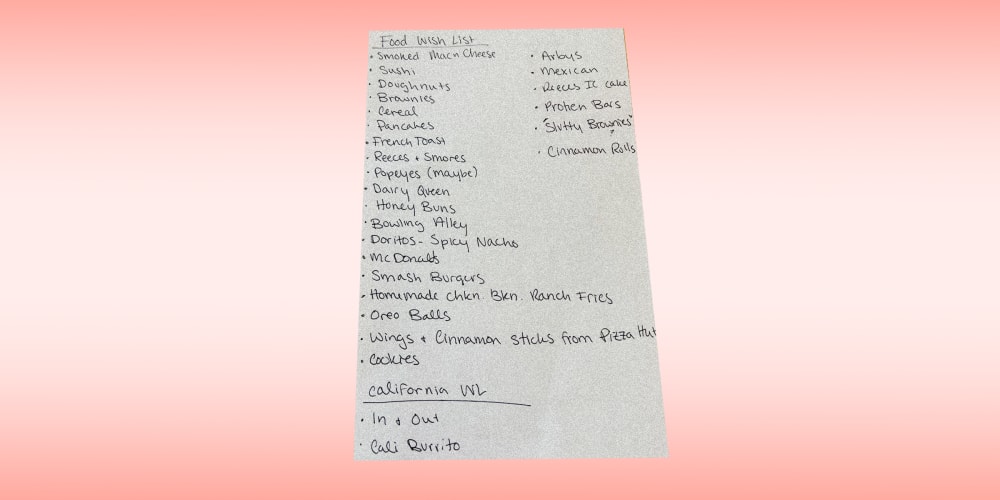 Food Wish List
• Smoked Mac n Cheese
• Sushi
• Doughnuts
• Brownies
• Cereal
• Pancakes
• French Toast
• Reeces + Smores
• Popeyes (maybe)
• Dairy Queen
• Honey Buns
• Bowling Alley
• Doritos - Spicy Nacho
• McDonalds
• Smash Burgers
• Homemade Chkn. Bkn. Ranch Fries
• Oreo Balls
• Wings + Cinnamon Sticks from Pizza Hut
• Cookies
• Arbys
• Mexican
• Reeces IC cake
• Protien Bars
• "Slutty Brownies"
• Cinnamon Rolls
California WL
• In + Out
• Cali Burrito